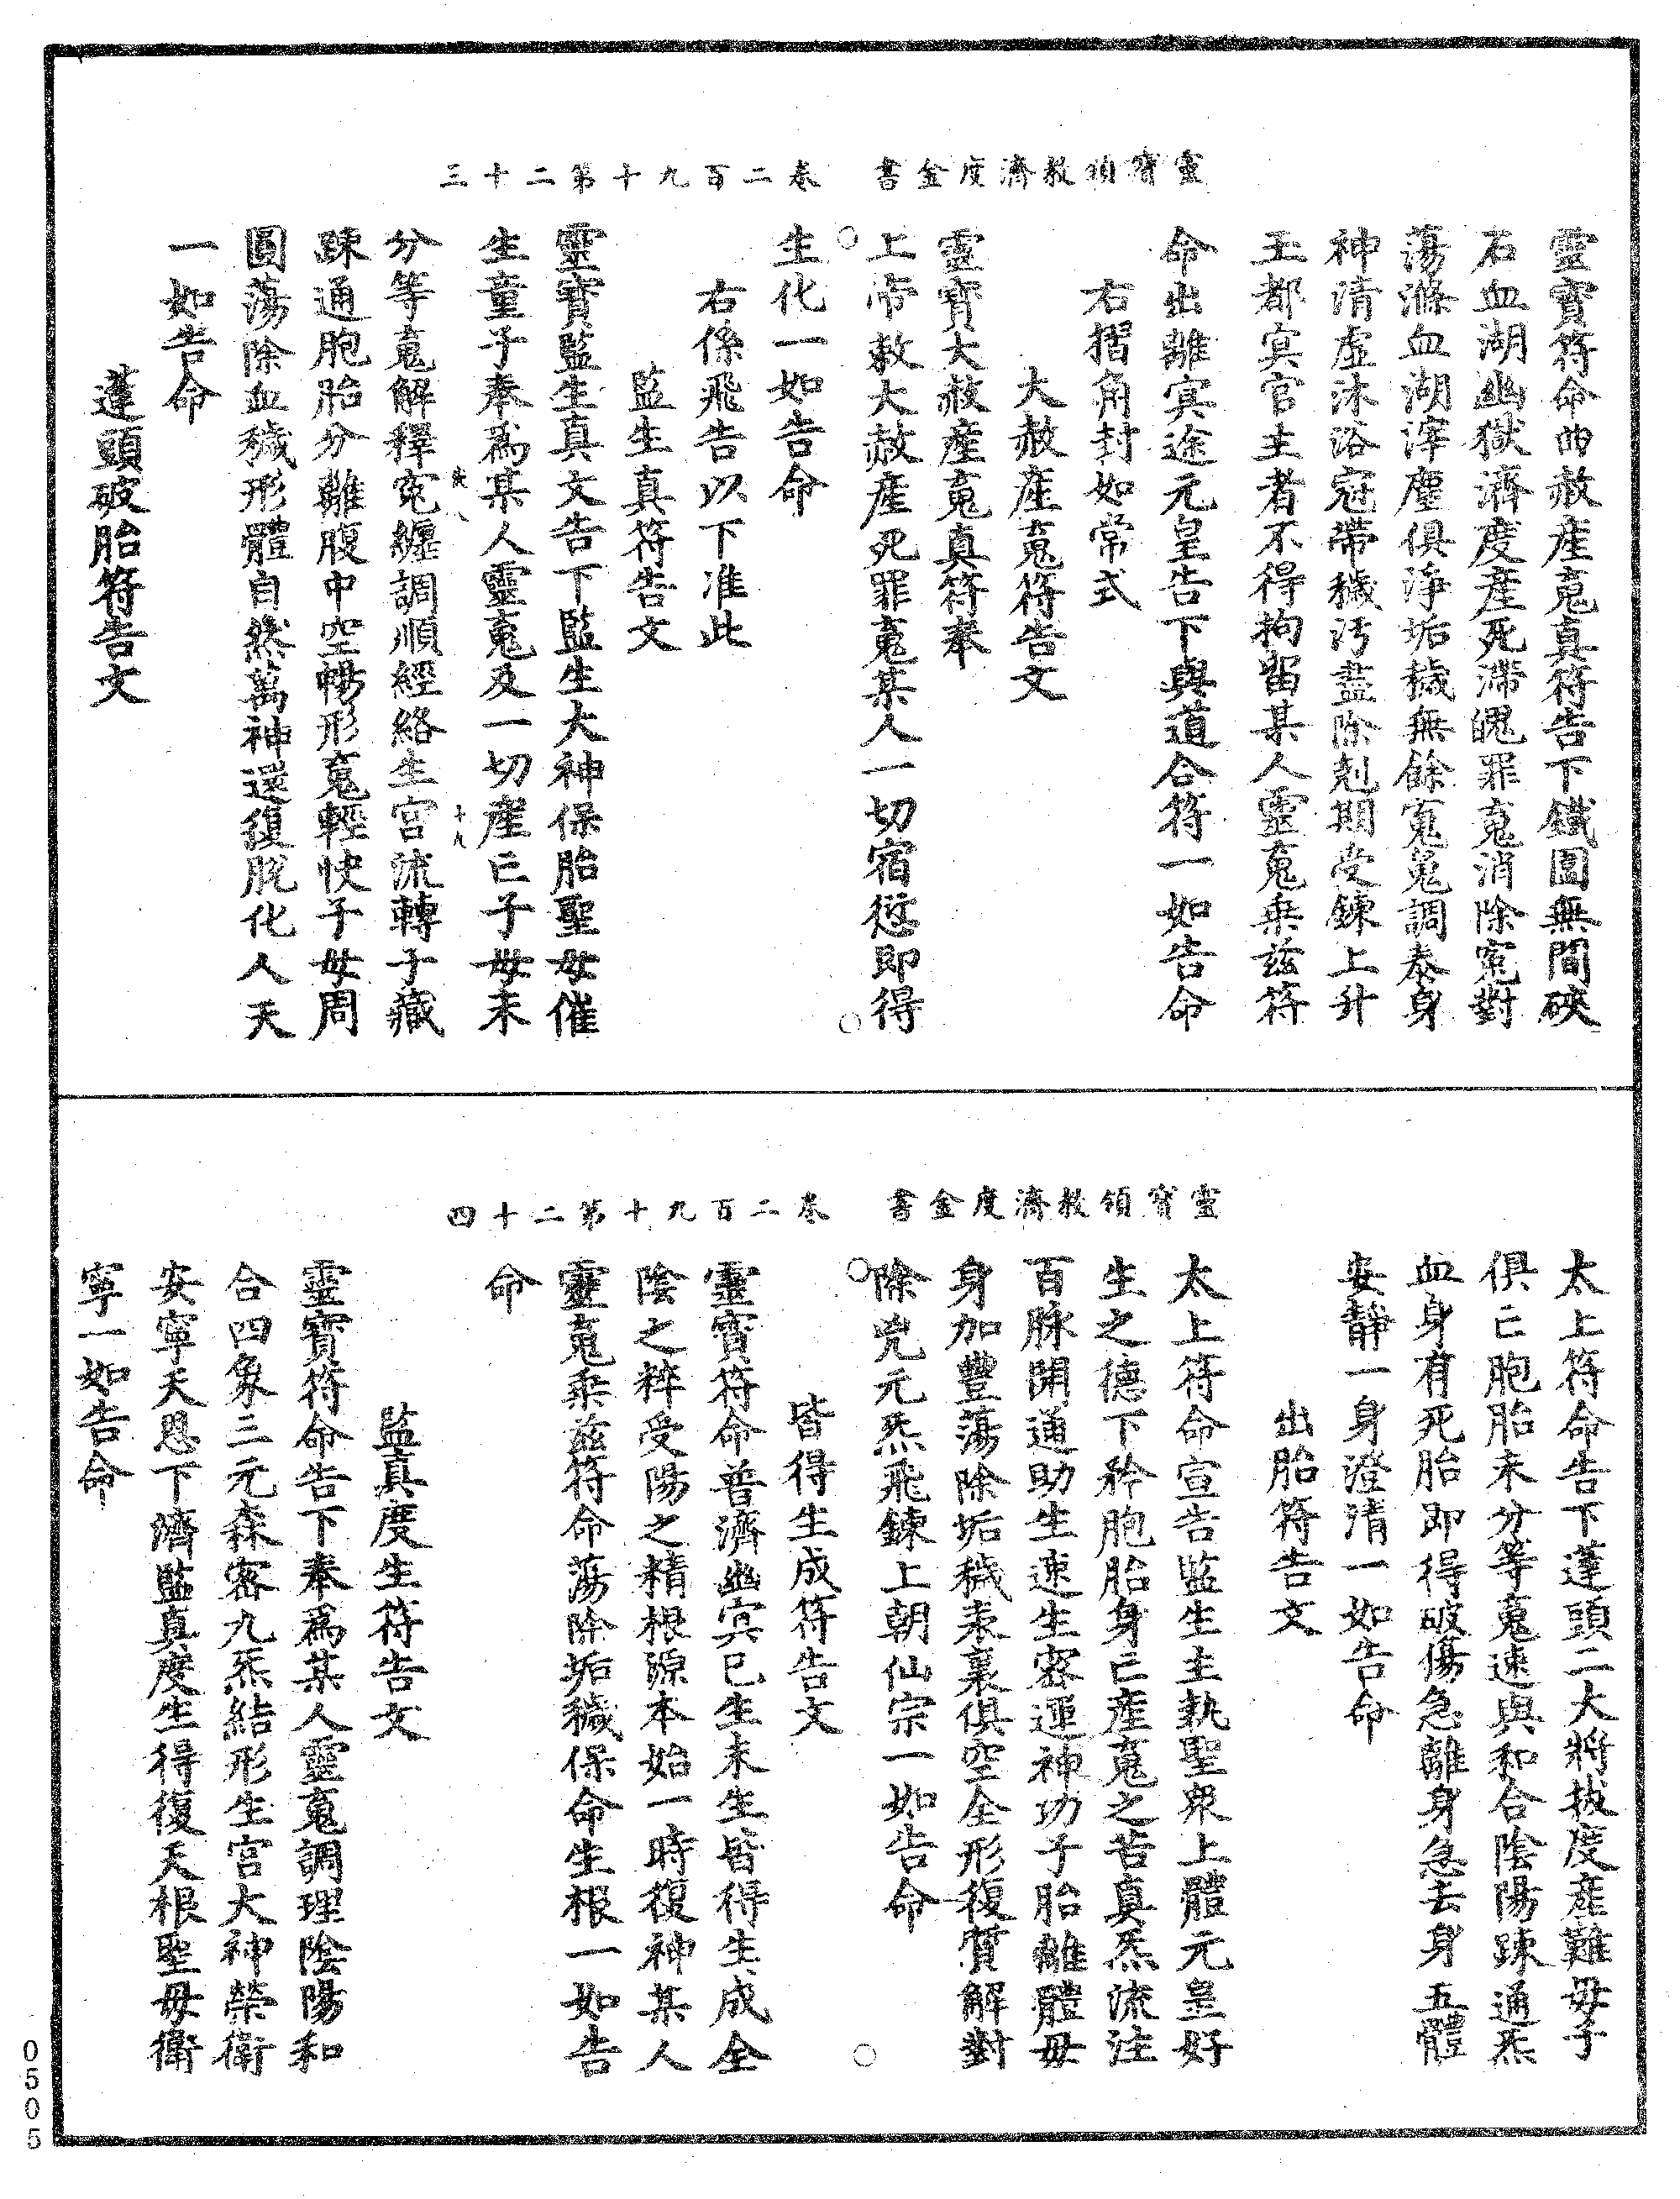 靈寶領教濟度金書　卷二百九十第二十三
靈寶符命曲赦産䰟真符告下鐵圍無間硤
石血湖幽獄濟度産死滯魄罪䰟消除寃對
蕩滌血湖滓塵俱淨垢穢無餘䰟䰟調泰身
神清虛沐浴冠帶穢汚盡除剋期受鍊上升
王都寘官主者不得拘留某人靈䰟乗兹符
命出離寘途元皇告下與道合符一如告命
右摺角封如常式
大赦産䰟符告文
靈寶大赦産䰟真符奉
上帝敕大赦産死罪䰟某人一切宿愆即得
生化一如告命
右係飛告以下准此
監生真符告文
靈寶監生真文告下監生大神保胎聖母催
生童子奉爲某人靈䰟及一切産亡子母未
分等䰟解釋寃纏調順經絡生宫流轉子藏
踈通胞胎分離腹中空暢形䰟輕快子母周
圓蕩除血穢形體自然萬神還復脱化人天
一如告命
蓬頭破胎符告文
靈寶領教濟度金書　卷二百九十第二十四
太上符命告下蓬頭二大將拔度産難母子
俱亡胞胎未分等䰟速與和合陰陽踈通炁
血身有死胎即得破傷急離身急去身五體
安靜一身澄清一如告命
出胎符告文
太上符命宣告監生主執聖衆上體元皇好
生之德下矜胞胎身亡産䰟之苦真炁流注
百脉開通助生速生密運神功子胎離體母
身加豐蕩除垢穢表裏俱空全形復質解對
除兇元炁飛鍊上朝仙宗一如告命
皆得生成符告文
靈寶符命普濟幽冥已生未生皆得生成全
陰之粹受陽之精根源本始一時復神某人
靈䰟乗兹符命蕩除垢穢保命生根一如告
命
監真度生符告文
靈寶符命告下奉爲某人靈䰟調理陰陽和
合四象三元森密九炁結形生宫大神榮衛
安寧天恩下濟監真度生得復天根聖母衛
寧一如告命
0505